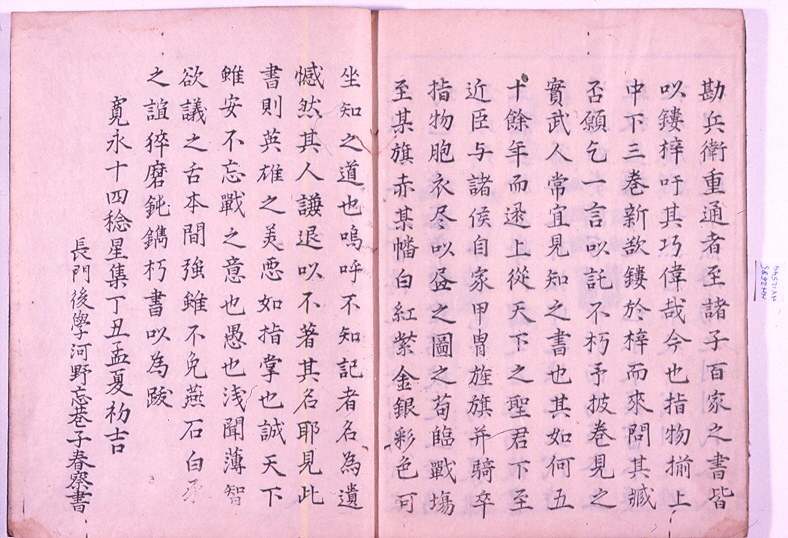 勘兵衛重通者至諸子百家之書皆
以鏤梓吁其巧偉哉今也指物揃上
中下三巻新欲鏤於梓而來問其臧
否願乞一言以託不朽予披巻見之
實武人常宜見知之書也其如何五
十餘年而還上從天下之聖君下至
近臣与諸侯自家甲冑旌旗并騎卒
指物胞衣尽以盡之圖之苟臨戰場
至某旗赤某幡白紅紫金銀彩色可
坐知之道也嗚呼不知記者名為遺
憾然其人謙退以不著其名耶見此
書則英雄之美悪如指掌也誠天下
雖安不忘戰之意也愚也浅聞薄智
欲議之舌本間強雖不免燕石白
之誼猝磨鈍鐫朽書以為跋
寛永十四稔星集丁丑孟夏初吉
長門後學河野忘巷子春察書